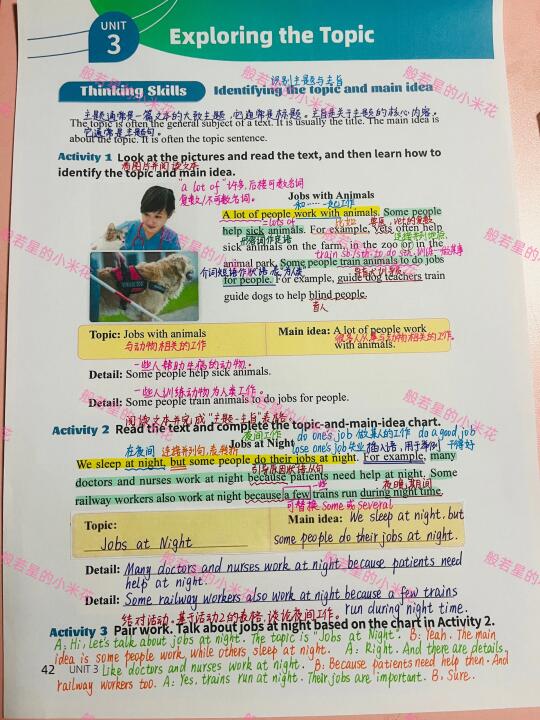 UNIT
3
Exploring the Topic
Thinking Skills
识别主题与主旨
Identifying the topic and main idea
主题通常是一篇文本的大致主题,它通常是标题。主旨是关于主题的核心内容,
The topic is often the general subject of a text. It is usually the title. The main idea is
它通常是主题句。
about the topic. It is often the topic sentence.
Activity 1 Look at the pictures and read the text, and then learn how to
看图片并阅读文本
identify the topic and main idea.
"a lot of" 许多,后接可数名词
复数/不可数名词。
Jobs with Animals
和……一起工作
A lot of people work with animals. Some people
= lots of
help sick animals. For example, vets often help
sick animals on the farm, in the zoo or in the
train sb/sth. to do sth. 训练…做某事
animal park. Some people train animals to do jobs
介词短语作状语,表为人类
for people. For example, guide dog teachers train
guide dogs to help blind people.
盲人
Topic: Jobs with animals
与动物相关的工作
Main idea: A lot of people work
with animals.
很多人从事与动物相关的工作。
一些人帮助生病的动物。
Detail: Some people help sick animals.
一些人训练动物为人类工作。
Detail: Some people train animals to do jobs for people.
阅读文本并完成"主题-主旨"表格。
Activity 2 Read the text and complete the topic-and-main-idea chart.
夜间工作
Jobs at Night
do one's job 做某人的工作 do a good job
干得好
lose one's job 失业
插入语,用于举例
在夜间 连接并列句,表转折
We sleep at night, but some people do their jobs at night. For example, many
引导原因状语从句
doctors and nurses work at night because patients need help at night. Some
一些
夜晚期间
railway workers also work at night because a few trains run during night time.
可替换 Some 或 Several
Topic:
Jobs at Night
Main idea: We sleep at night, but
some people do their jobs at night.
Detail: Many doctors and nurses work at night because patients need
help at night.
Detail: Some railway workers also work at night because a few trains
run during night time.
结对活动。基于活动2的表格,谈论夜间工作。
Activity 3 Pair work. Talk about jobs at night based on the chart in Activity 2.
A: Hi, Let's talk about jobs at night. The topic is "Jobs at Night". B: Yeah. The main
idea is some people work, while others sleep at night. A: Right. And there are details,
Like doctors and nurses work at night. B: Because patients need help then. And
railway workers too. A: Yes, trains run at night. Their jobs are important. B: Sure.
42 UNIT 3
般若星的小米花